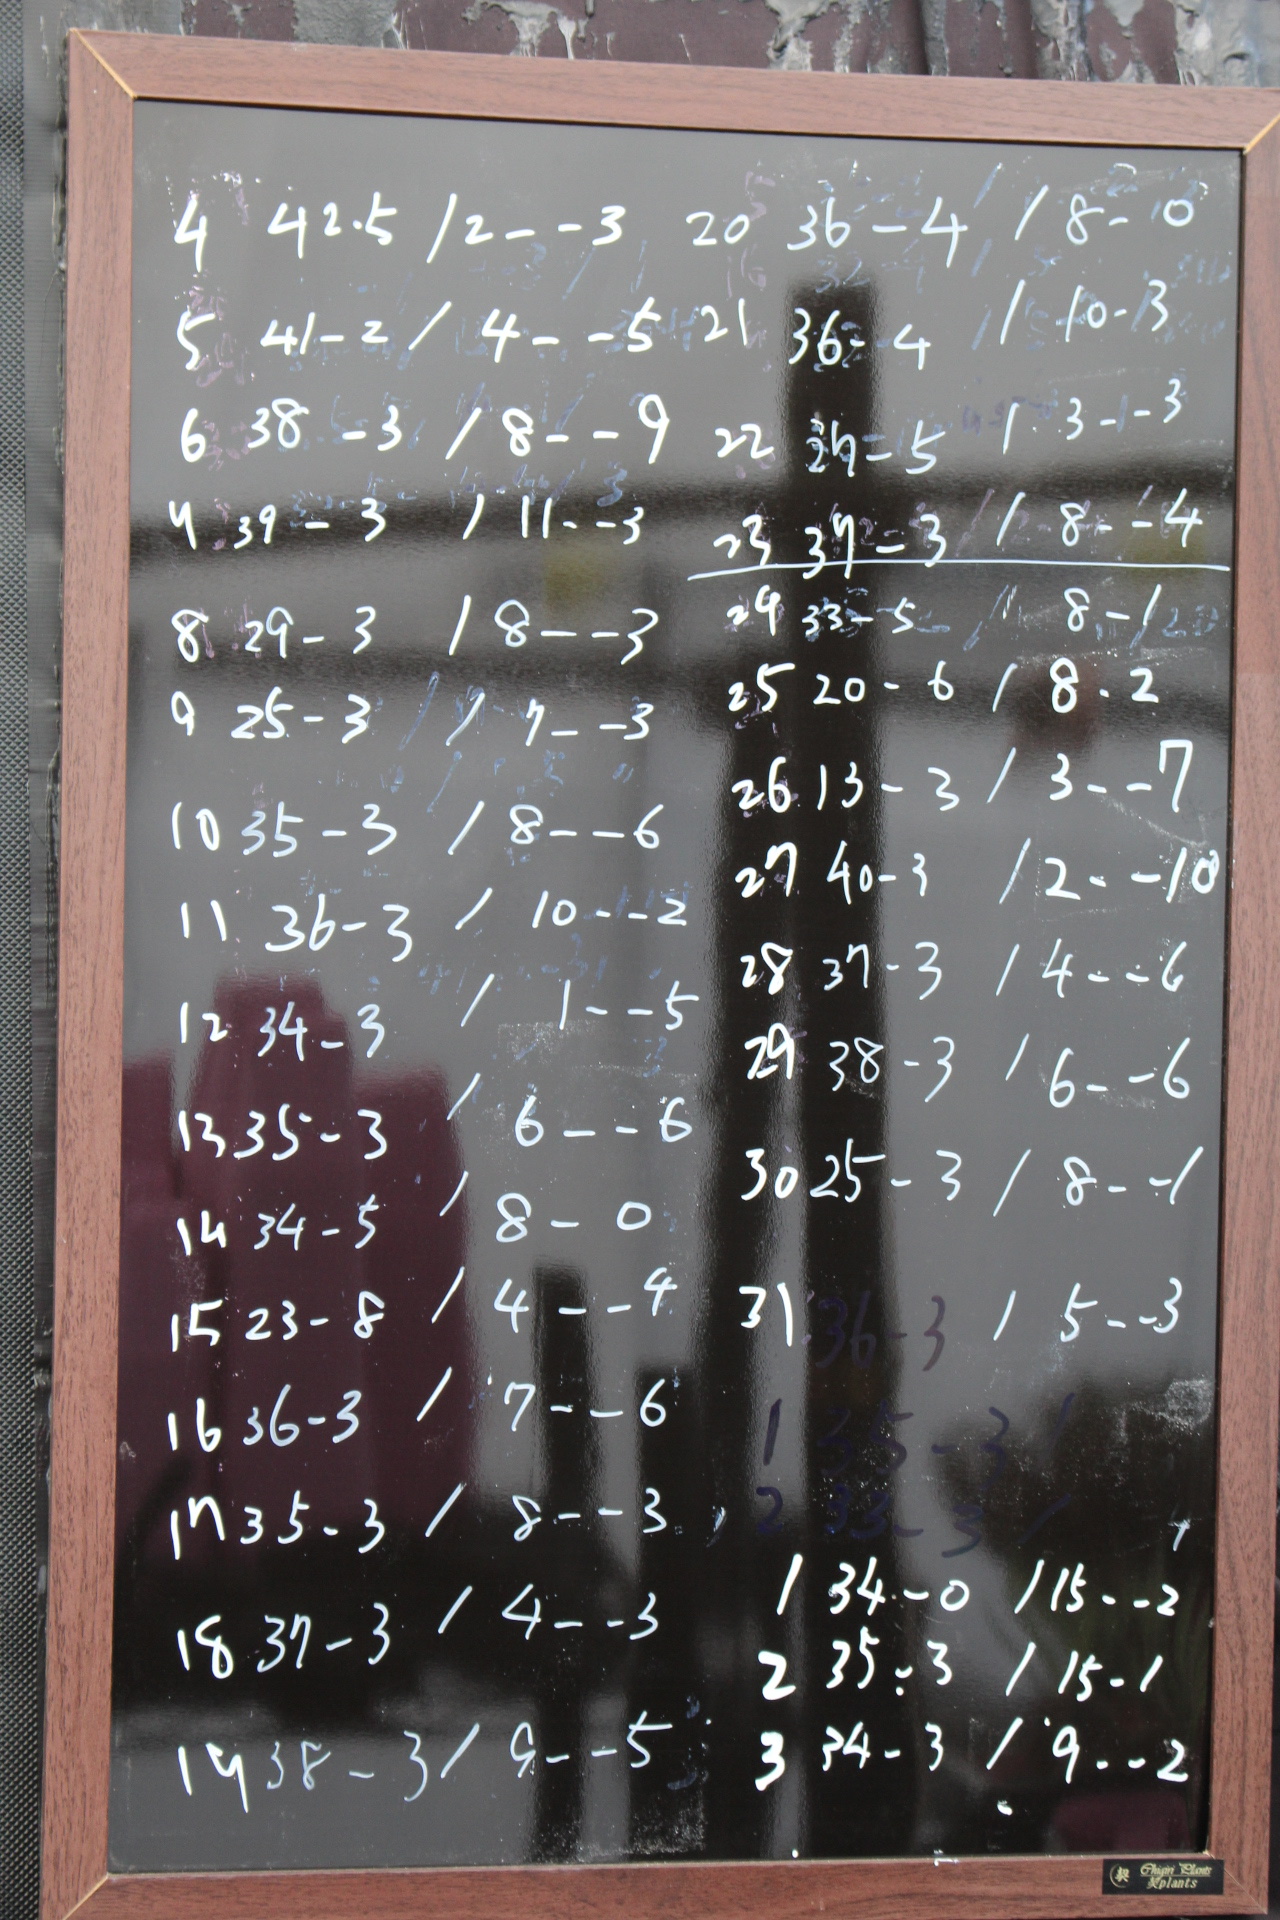 4 42.5 / 2 - -3
5 41-2 / 4 - -5
6 38 -3 / 8 - -9
7 39 - 3 / 11 - -3
8 29 - 3 / 8 - -3
9 25 - 3 / 7 - -3
10 35 - 3 / 8 - -6
11 36-3 / 10 - -2
12 34-3 / 1 - -5
13 35-3 / 6 - -6
14 34-5 / 8 - 0
15 23-8 / 4 - -4
16 36-3 / 7 - -6
17 35-3 / 8 - -3
18 37-3 / 4 - -3
19 38 - 3 / 9 - -5
20 36 - 4 / 8 - 0
21 36-4 / 10-3
22 37-5 / 3 - -3
23 37-3 / 8 - -4
24 33-5 / 8-1
25 20-6 / 8-2
26 13-3 / 3 - -7
27 40-3 / 2 - -10
28 37-3 / 4 - -6
29 38-3 / 6 - -6
30 25-3 / 8 - -1
31 36-3 / 5 - -3
1 35-3 /
2 33-3 /
1 34-0 / 15 - -2
2 35-3 / 15-1
3 34-3 / 9 - -2
Chigiri Plants
契plants